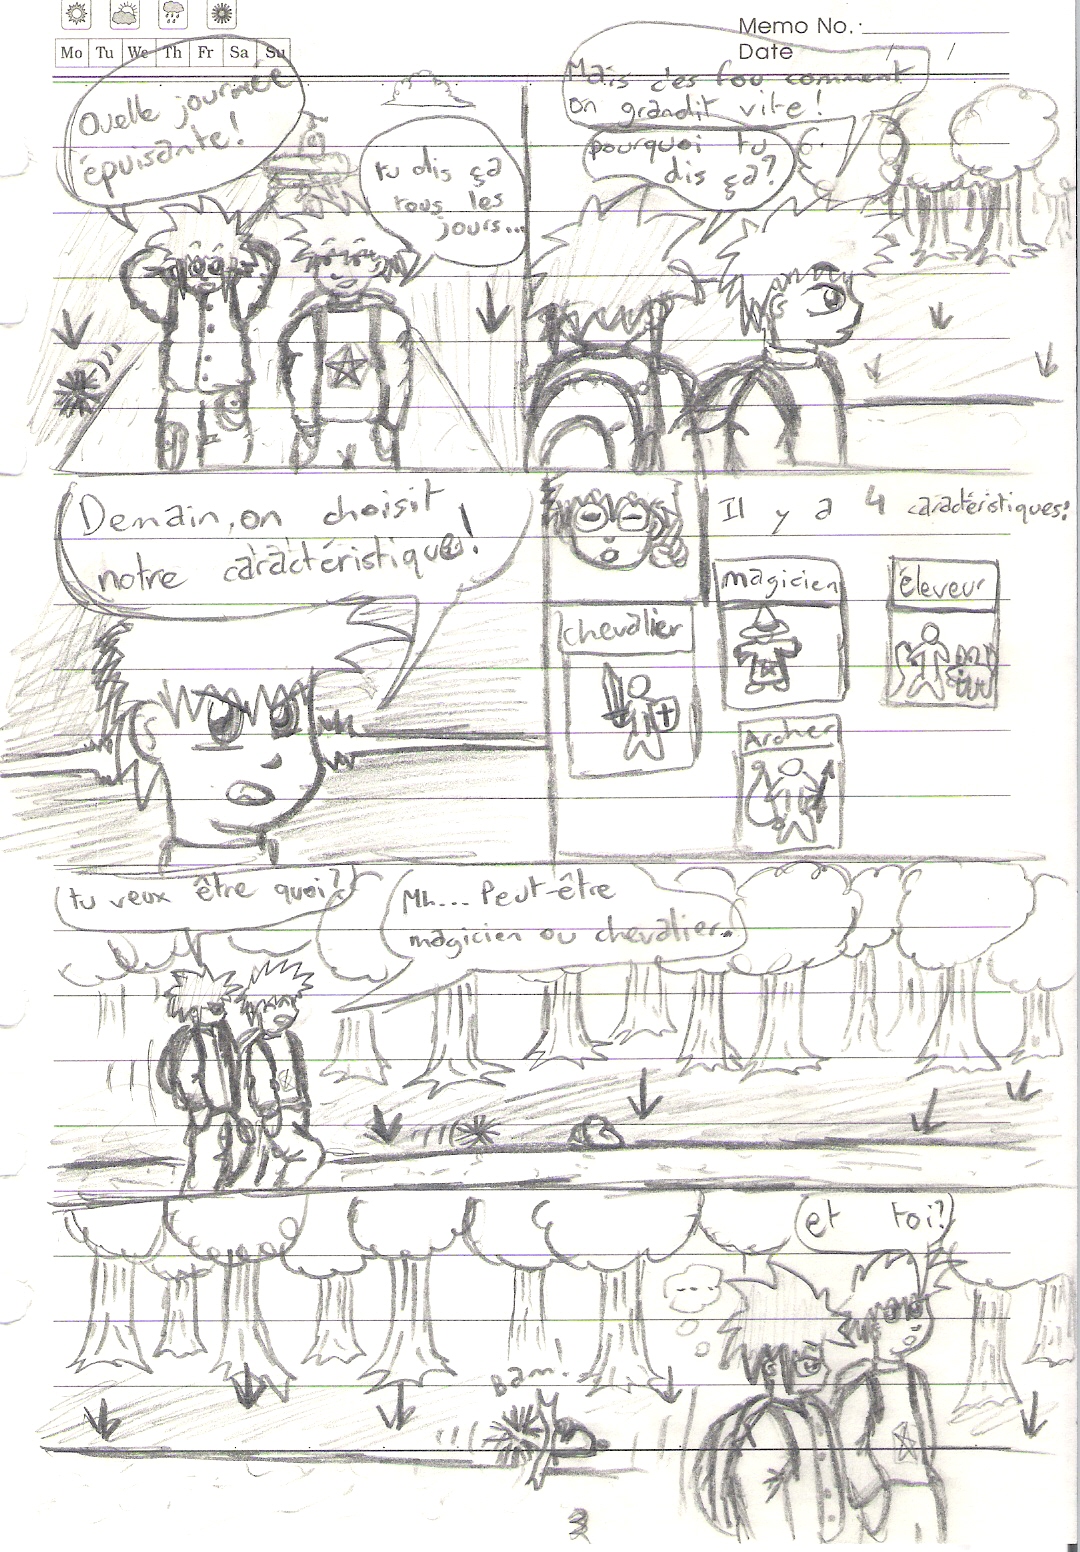 Mo Tu We Th Fr Sa Su
Memo No. :
Date / /
Quelle journée
épuisante!
tu dis ça
tous les
jours...
Mais c'es fou comment
on grandit vite!
pourquoi tu
dis ça?
Demain, on choisit
notre caractéristique!
Il y a 4 caractéristiques:
magicien
éleveur
chevalier
Archer
tu veux être quoi?
Mh... Peut-être
magicien ou chevalier..
et toi?
...
Bam!
3